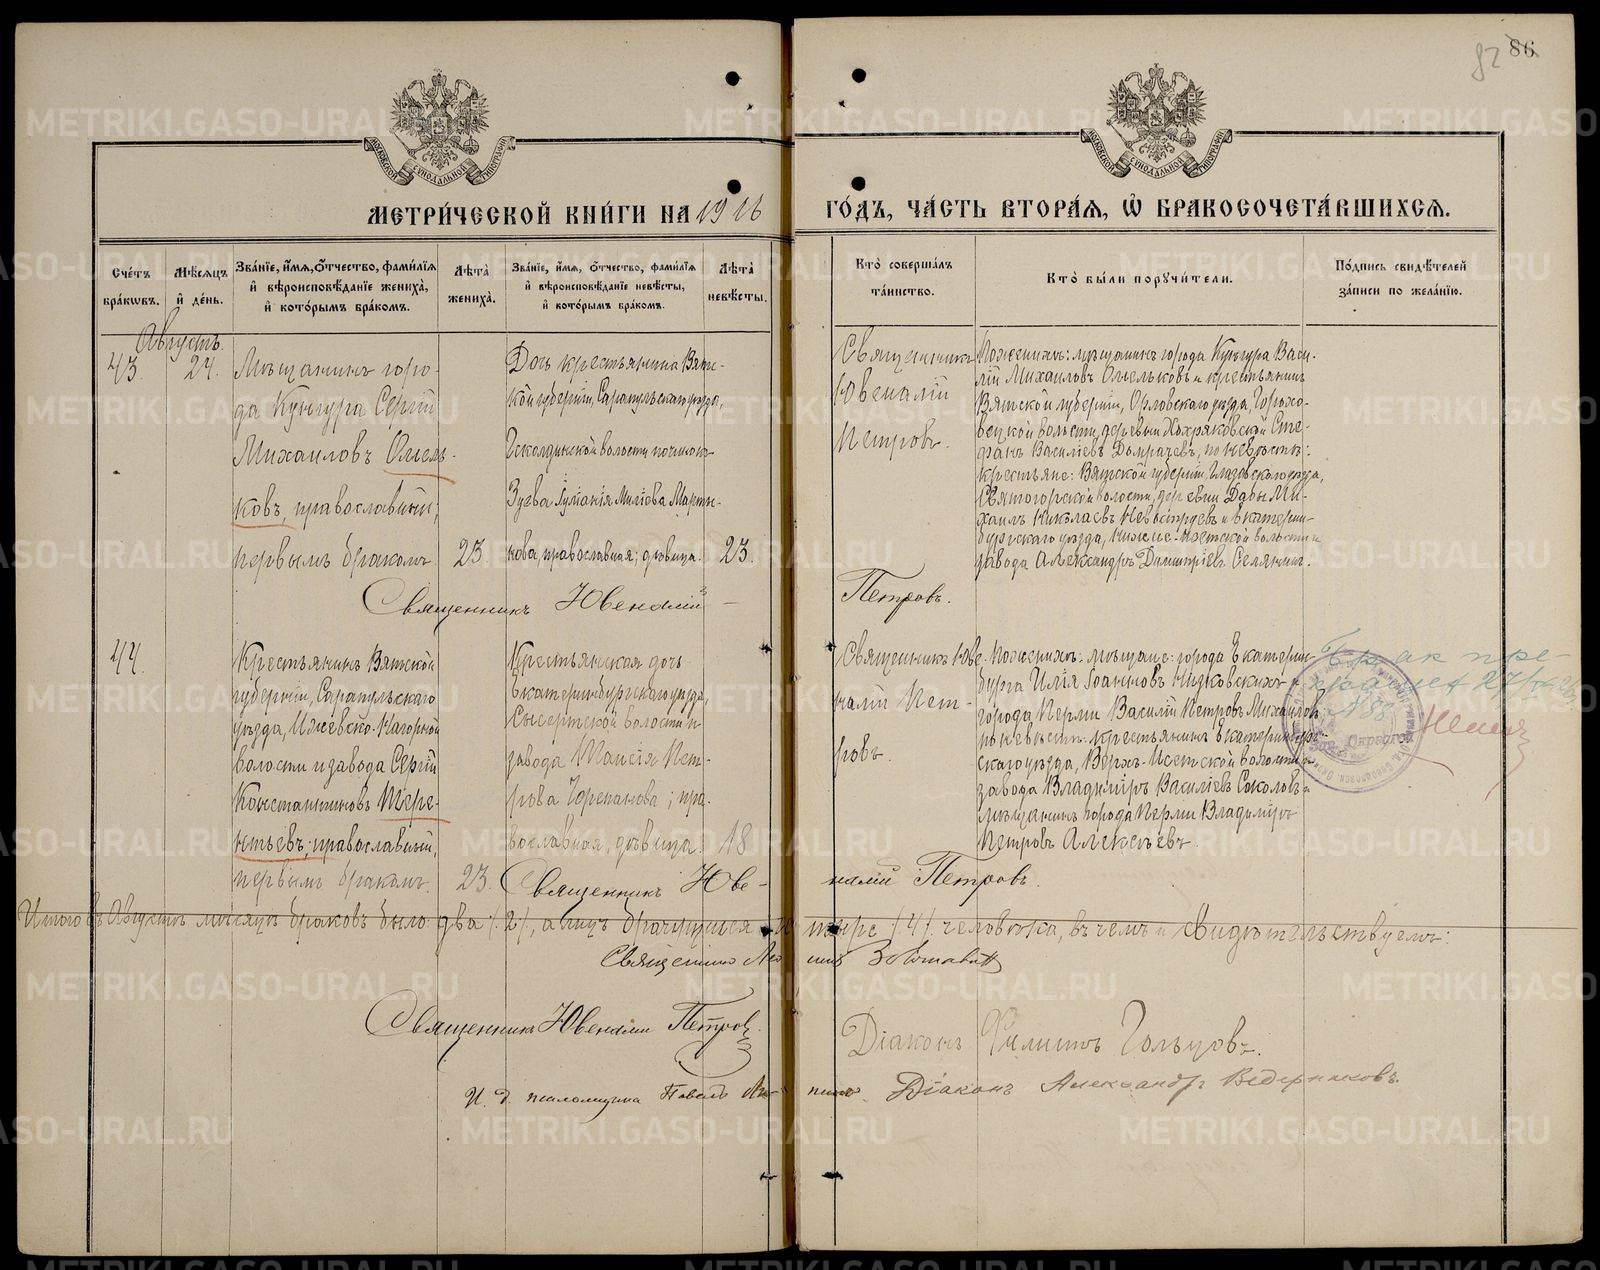 82 86
МОСКОВСКОЙ СѴНОДАЛЬНОЙ ТИПОГРАФІИ
МОСКОВСКОЙ СѴНОДАЛЬНОЙ ТИПОГРАФІИ
МЕТРИ́ЧЕСКОЙ КНИ́ГИ НА 1916
ГО́ДЪ, ЧА́СТЬ ВТОРА́Я, Ѡ҆ БРАКОСОЧЕТА́ВШИХСЯ.
Сче́тъ
бра́кѡвъ.
Мѣ́сяцъ
и҆ де́нь.
Зва́нїе, и҆́мя, ѻ҆́тчество, фами́лїя
и҆ вѣроисповѣ́данїе жениха̀,
и҆ кото́рымъ бра́комъ.
Лѣ́та̀
жениха̀.
Зва́нїе, и҆́мя, ѻ҆́тчество, фами́лїя
и҆ вѣроисповѣ́данїе невѣ́сты,
и҆ кото́рымъ бра́комъ.
Лѣ́та̀
невѣ́сты.
Кто̀ соверша́лъ
та́инство.
Кто̀ бы́ли порꙋчи́тели.
По́дпись свидѣ́телей
за́писи по жела́нїю.
Августъ.
43.
24.
Мѣщанинъ горо-
да Кунгура Сергій
Михаиловъ Омель-
ковъ, православный;
первымъ бракомъ
23.
Дочь крестьянина Вят-
кой губерніи, Сарапульскаго уѣзда,
волости починокъ
Зуева Марты-
нова, православная; дѣвица.
23.
Священникъ
Ювеналій
Петровъ.
По женихѣ: мѣщанинъ города Кунгура Васи-
лій Михаиловъ Омельковъ и крестьянинъ
Вятской губерніи, Орловскаго уѣзда, Горохо-
вецкой волости, деревни Хохряковской Сте-
фанъ Васильевъ Домрачевъ, по невѣстѣ:
крестьяне: Вятской губерніи, Глазовскаго уѣзда,
Святогорской волости, деревни Ми-
хаилъ Николаевъ Невоструевъ и Екатерин-
бургскаго уѣзда, Нижне-Исетской волости и
завода Александръ Димитріевъ Селянинъ.
Священникъ Ювеналій
Петровъ.
44.
Крестьянинъ Вятской
губерніи, Сарапульскаго
уѣзда, Ижевско-Нагорной
волости и завода Сергій
Константиновъ Тере-
нтьевъ, православный,
первымъ бракомъ.
23.
Крестьянская дочь
Екатеринбургскаго уѣзда,
Сысертской волости и
завода Таисія Пет-
рова Черепанова; пра-
вославная, дѣвица.
18
Священникъ Юве-
налій Пет-
ровъ.
По женихѣ: мѣщане: города Екатерин-
бурга Илія Іоанновъ Низковскихъ и
города Перми Василій Петровъ Михайлов
по невѣстѣ: крестьянинъ Екатеринбург-
скаго уѣзда, Верхъ-Исетской волости и
завода Владиміръ Василіевъ Соколовъ и
мѣщанинъ города Перми Владиміръ
Петровъ Алексѣевъ.
Брак пре-
кращен 27/
№ 88
Священникъ Юве-
налій Петровъ.
Итого въ Августѣ мѣсяцѣ браковъ было: два /2/, а лицъ брачущихся че-
тыре /4/ человѣка, въ чемъ и свидѣтельствуемъ:
Священникъ
Священникъ Ювеналій Петровъ.
Діаконъ Филиппъ Гольцовъ.
И. д. псаломщика Павелъ
Діаконъ Александръ Ведерниковъ.
METRIKI.GASO-URAL.RU